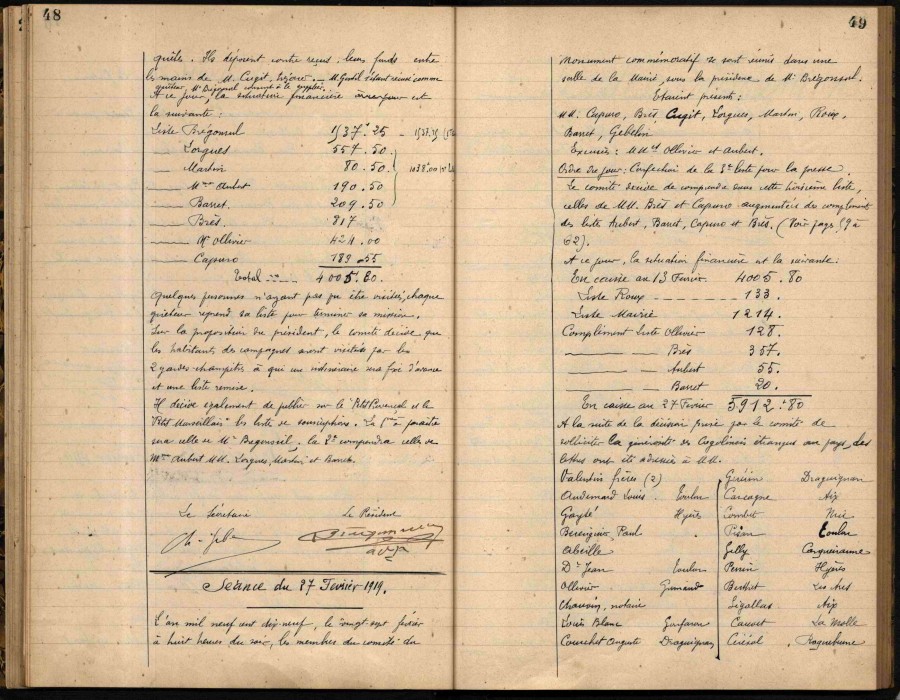 48
quêtes. Ils déposent contre reçus, leurs fonds entre
les mains de M. Cugit, trésorier. — M. Gentil s'étant récusé comme
quêteur Mr Brégonsul consent à le
A ce jour, la situation financière est
la suivante :
Liste Brégonsul 1537.25
— Lorgues 557.50
— Martin 80.50
— Mme Aubert 190.50
— Barret 209.50
— Brès 817
— Mr Ollivier 424.00
— Capuro 189.55
Total 4005.80.
Quelques personnes n'ayant pas pu être visitées, chaque
quêteur reprend sa liste pour terminer sa mission.
Sur la proposition du président, le comité décide que
les habitants des campagnes seront visités par les
2 gardes-champêtres à qui un itinéraire sera fixé d'avance
et une liste remise.
Il décide également de publier sur le "Petit Provençal et le
Petit Marseillais" les listes de souscriptions. La 1ère à paraître
sera celle de Mr Brégonsul, la 2e comprendra celles de
Mme Aubert MM. Lorgues, Martin et Barret.
Le Secrétaire Le Président
Séance du 27 Février 1919.
L'an mil neuf cent dix-neuf, le vingt sept février
à huit heures du soir, les membres du comité du
49
Monument commémoratif se sont réunis dans une
salle de la Mairie sous la présidence de Mr Brégonsul.
Etaient présents :
MM. Capuro, Brès, Cugit, Lorgues, Martin, Roux,
Barret, Gebelin
Excusés : MMes Ollivier et Aubert.
Ordre du jour : Confection de la 3e liste pour la presse.
Le comité décide de comprendre dans cette troisième liste,
celles de MM. Brès et Capuro augmentées des compléments
des listes Aubert, Barret, Capuro et Brès. (Voir pages 59 à
62).
A ce jour, la situation financière est la suivante :
En caisse au 13 Février 4005.80
Liste Roux 133.
Liste Mairie 1214.
Complément Liste Ollivier 128.
— — Brès 357.
— — Aubert 55.
— — Barret 20.
En caisse au 27 Février 5912.80
A la suite de la décision prise par le comité de
solliciter la générosité des Cogolinois étrangers au pays, des
lettres ont été adressées à MM.
Valentin frères (2) Guérin Draguignan
Audemard Louis Toulon Cascagne Aix
Gayté Hyères Combet Nice
Berenguier Paul Toulon
Abeille Gilly Carqueiranne
Dr Jean Toulon Perrin Hyères
Ollivier Grimaud Berthet Les Arcs
Chauvin, notaire Sigallas Aix
Louis Blanc Gonfaron Causset La Molle
Courchet Auguste Draguignan Roquebrune